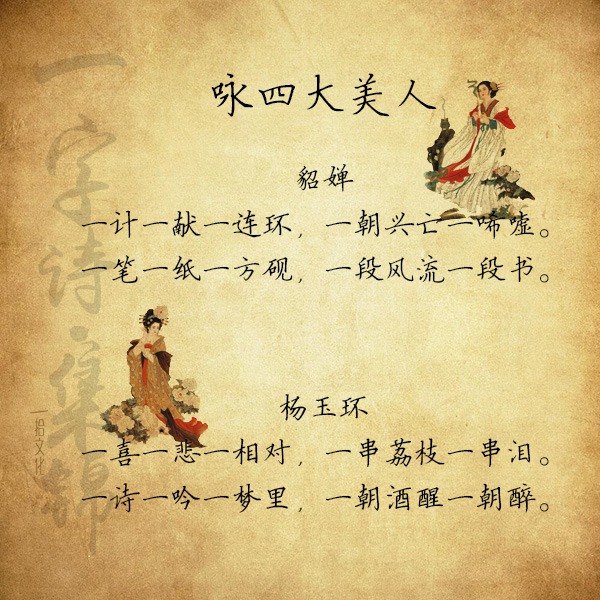 咏四大美人
貂婵
一计一献一连环，一朝兴亡一唏嘘。
一笔一纸一方砚，一段风流一段书。
杨玉环
一喜一悲一相对，一串荔枝一串泪。
一诗一吟一梦里，一朝酒醒一朝醉。
一字诗集锦
一拾文化